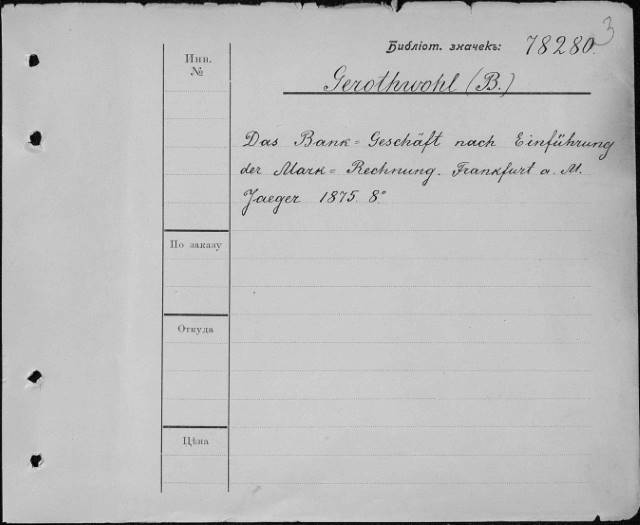 3
Библіот. значекъ: 78280.
Gerothwohl (B.)
Инв.
№
Das Bank=Geschäft nach Einführung
der Mark=Rechnung. Frankfurt a. M.
Jaeger 1875. 8°
По заказу
Откуда
Цѣна